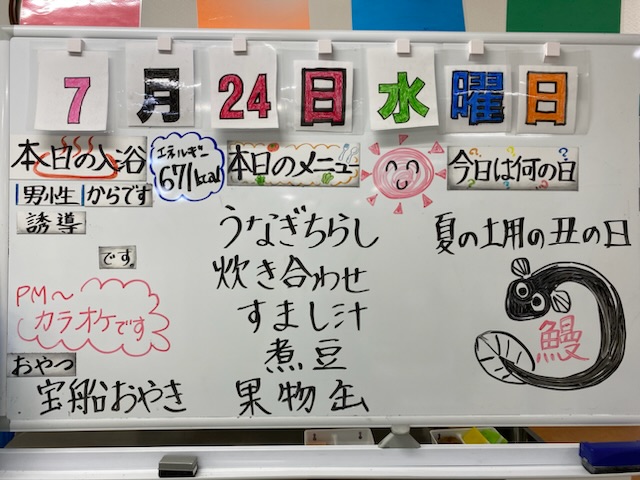 7月24日水曜日
本日の入浴
男性 からです
誘導
です
PM～
カラオケです
おやつ
宝船おやき
エネルギー
671kcal
本日のメニュー
うなぎちらし
炊き合わせ
すまし汁
煮豆
果物缶
今日は何の日
夏の土用の丑の日
鰻